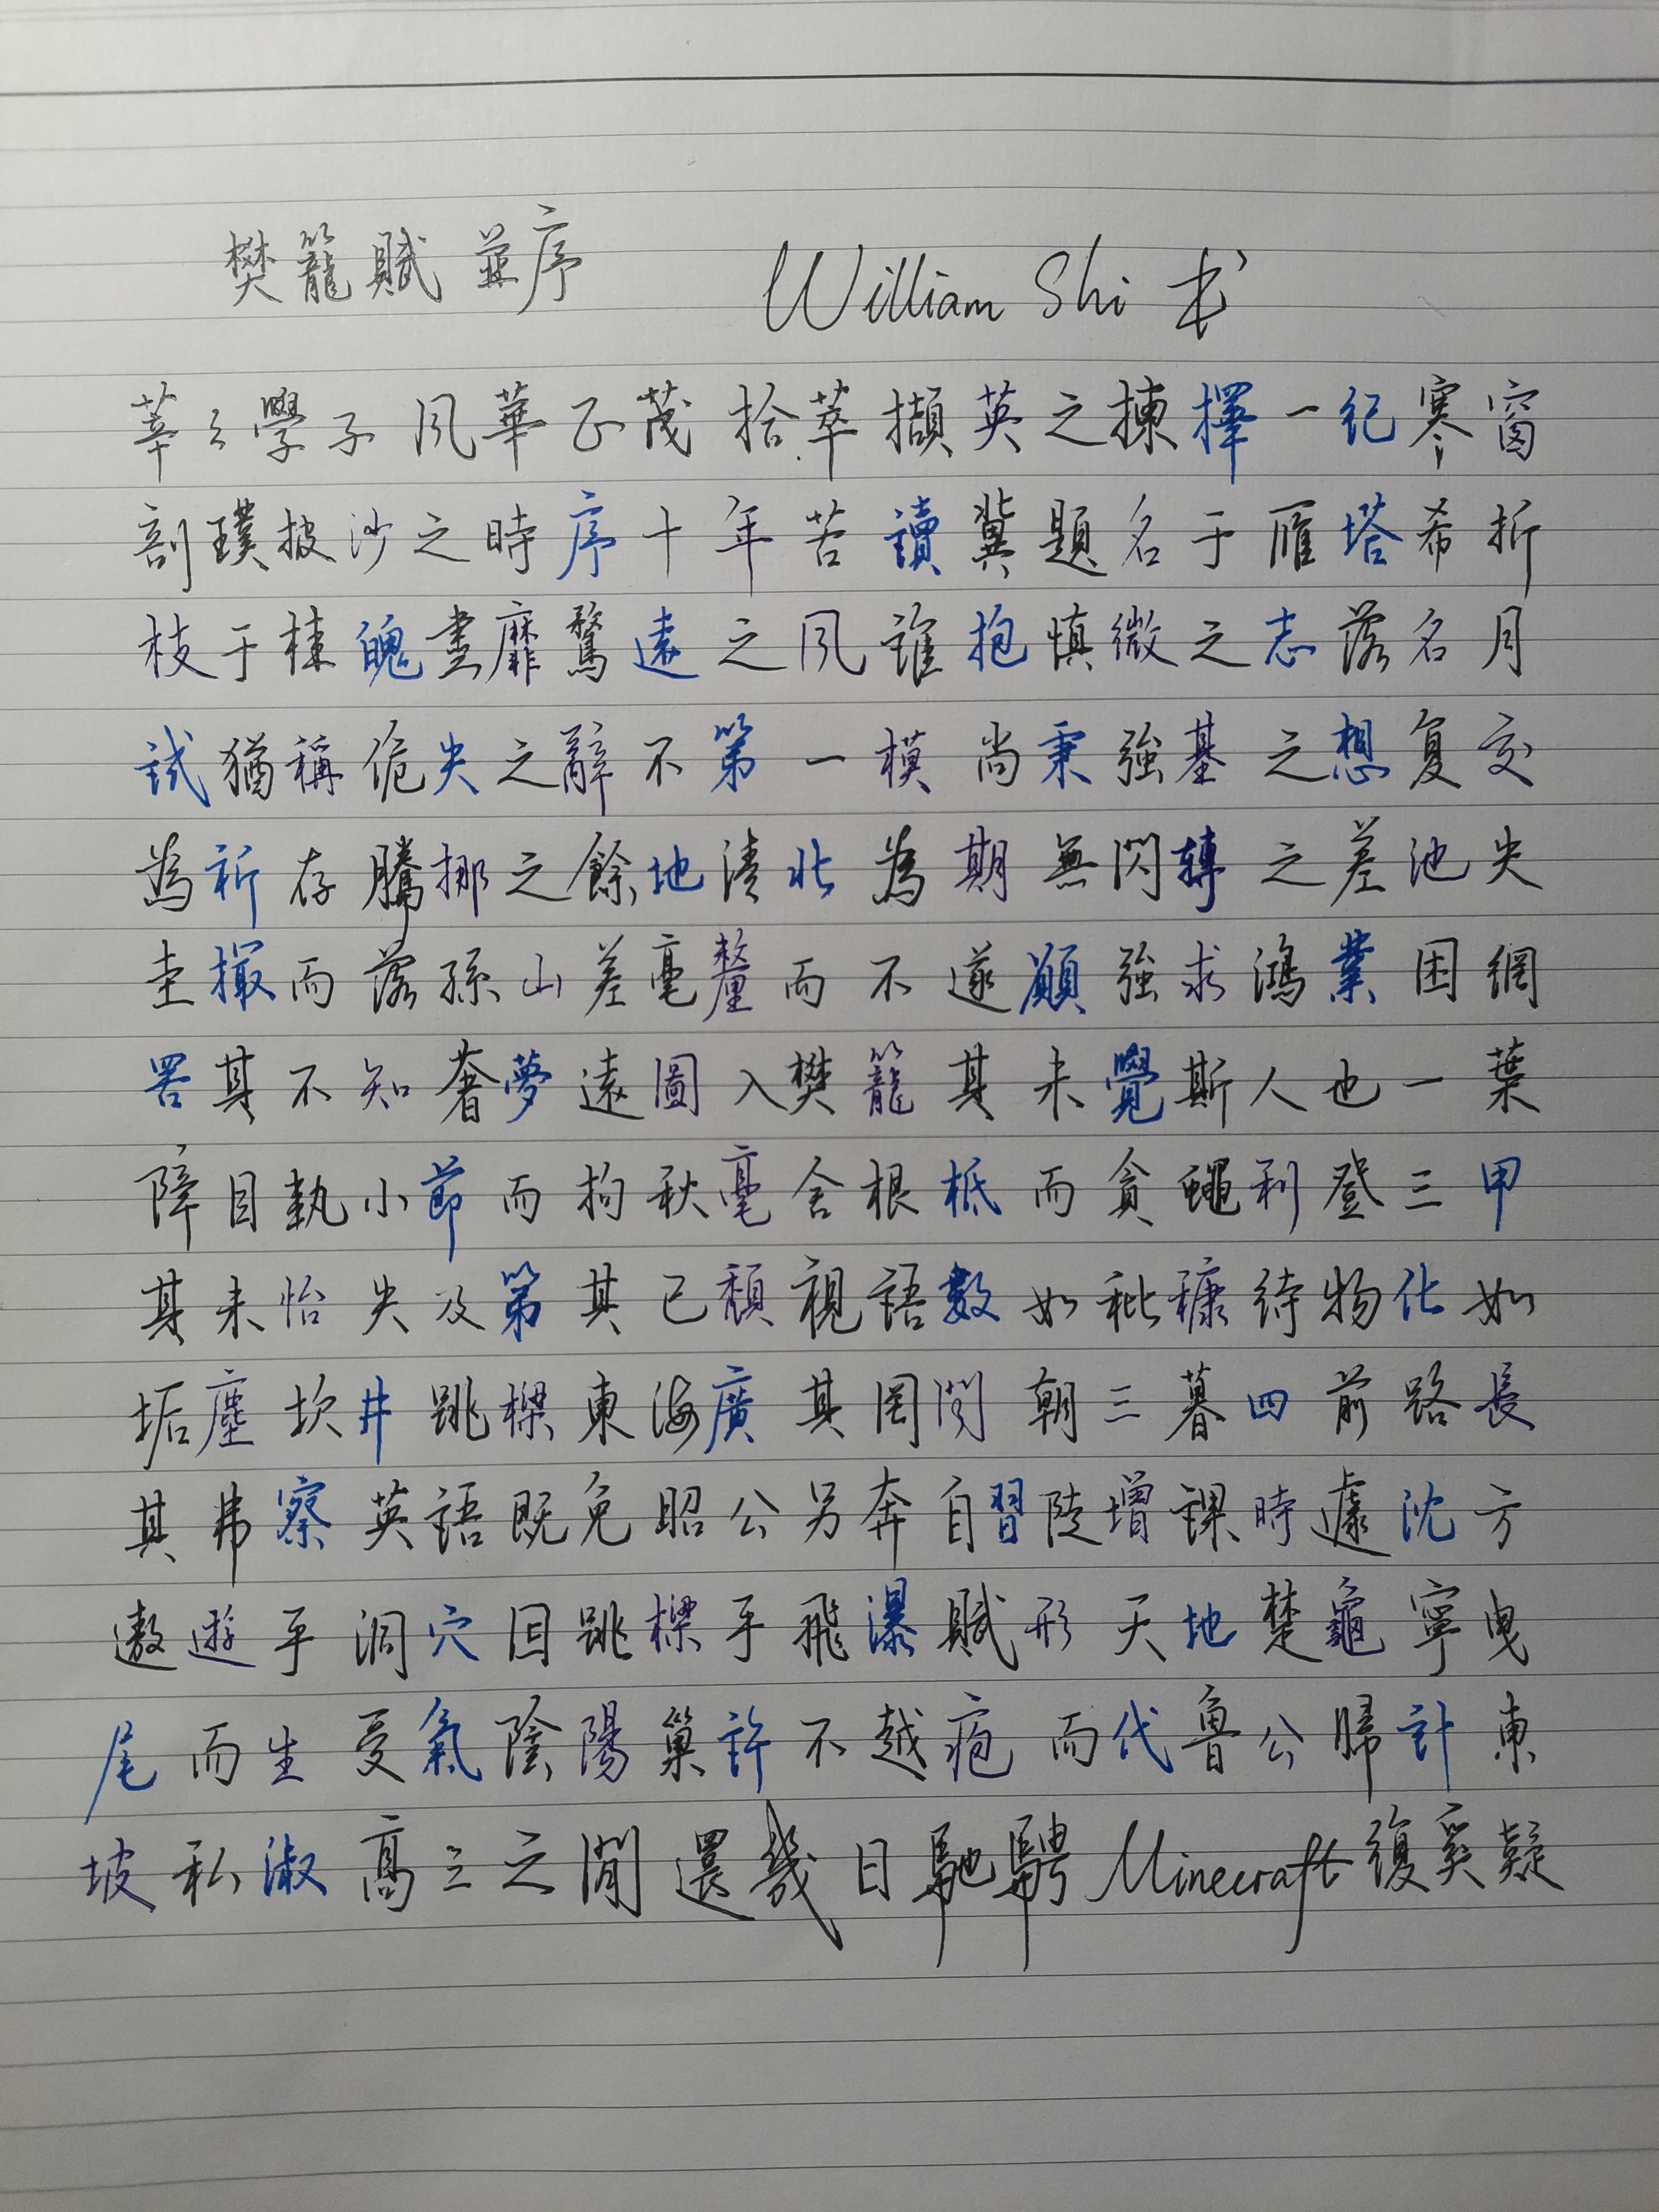 樊籠賦 並序 William Shi 书
莘々學子風華正茂拾萃擷英之揀擇一纪寒窗
剖璞披沙之時序十年苦讀冀題名于雁塔希折
枝于棘盡靡騖遠之風誰抱慎微之志落名月
試猶稱佹失之辭不第一模尚秉強基之想复交
為祈存騰挪之餘地清北為期無閃轉之差池失
圭撮而落孫山差毫釐而不遂願強求鴻業困網
罟其不知奢夢遠圖入樊籠其未覺斯人也一葉
障目執小節而拘秋毫舍根柢而貪蠅利登三甲
其未怡失及第其已頹視語數如秕糠待物化如
垢塵坎井跳樑東海廣其罔聞朝三暮四前路長
其弗察英語既免昭公另奔自習陡增課時遽沈方
遨遊乎洞穴回跳樑乎飛瀑賦形天地楚龜寧曳
尾而生受氣陰陽巢許不越庖而代魯公歸計東
坡私淑高三之間還幾日馳騁Minecraft復奚疑